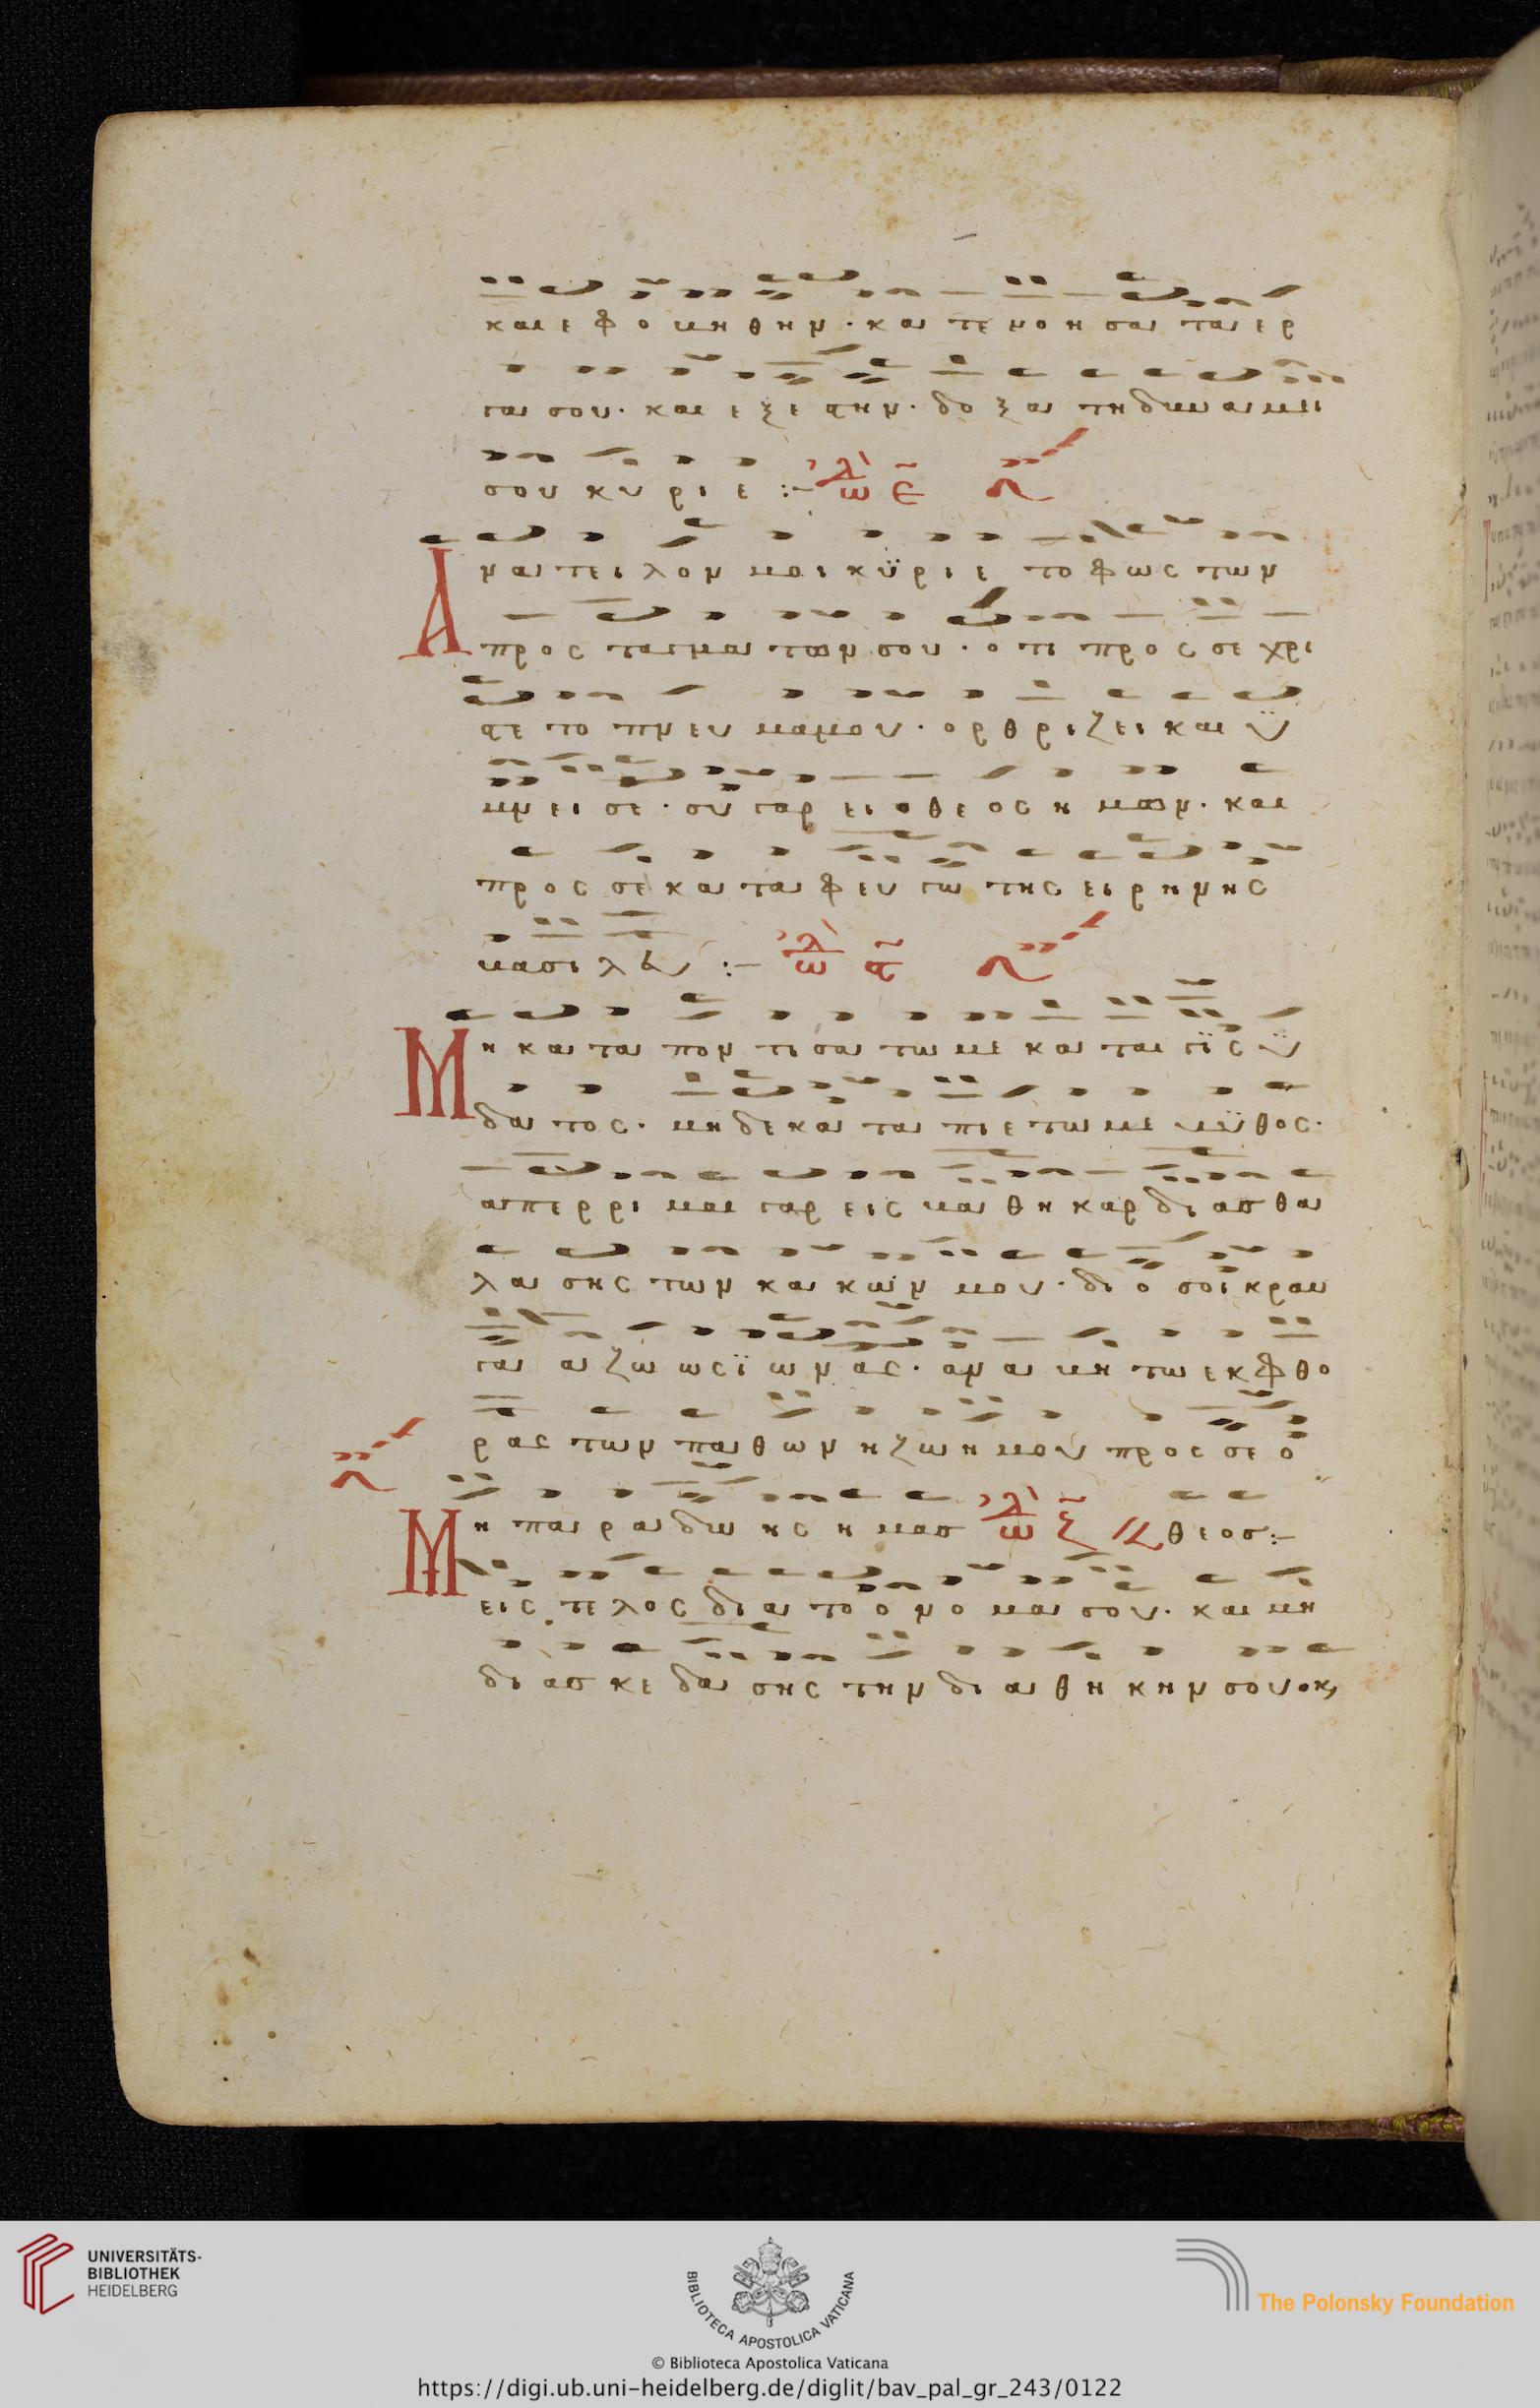 και ε φο βη θην · κα τε νο η σα τα ερ
γα σου · και ε ξε στην · δο ξα τη δυναμει
σου κυ ρι ε :– ωδη ε
Α να τει λον μοι κϋ ρι ε το φως των
προς ταγμα των σου · ο τι προς σε χρι
στε το πνευ μαμου · ορ θρι ζει και ϋ
μνει σε · συ γαρ ει ο θε ος η μων · και
προς σε κα τα φευ γω της ει ρη νης
βασι λευ :–
Μ η κα τα πον τι σα τω με κα ται γϊς ϋ
δα τος · μη δε κα τα πι ε τω με βϋθος ·
απερ ρι μαι γαρ εις βα θη καρ δι ασ θα
λα σης των κα κων μου · δι ο σοι κραυ
γα α ζω ως ϊ ω νας · αν α βη τω εκ φθο
ρας των πα θων η ζωη μου προς σε ο
Μ η πα ρα δω ης η μασ θεοσ :–
εις τε λος δι α το ο νο μα σου · και μη
δι ασ κε δα σης την δι α θη κην σου ο κς
UNIVERSITÄTS-
BIBLIOTHEK
HEIDELBERG
BIBLIOTECA APOSTOLICA VATICANA
The Polonsky Foundation
© Biblioteca Apostolica Vaticana
https://digi.ub.uni-heidelberg.de/diglit/bav_pal_gr_243/0122